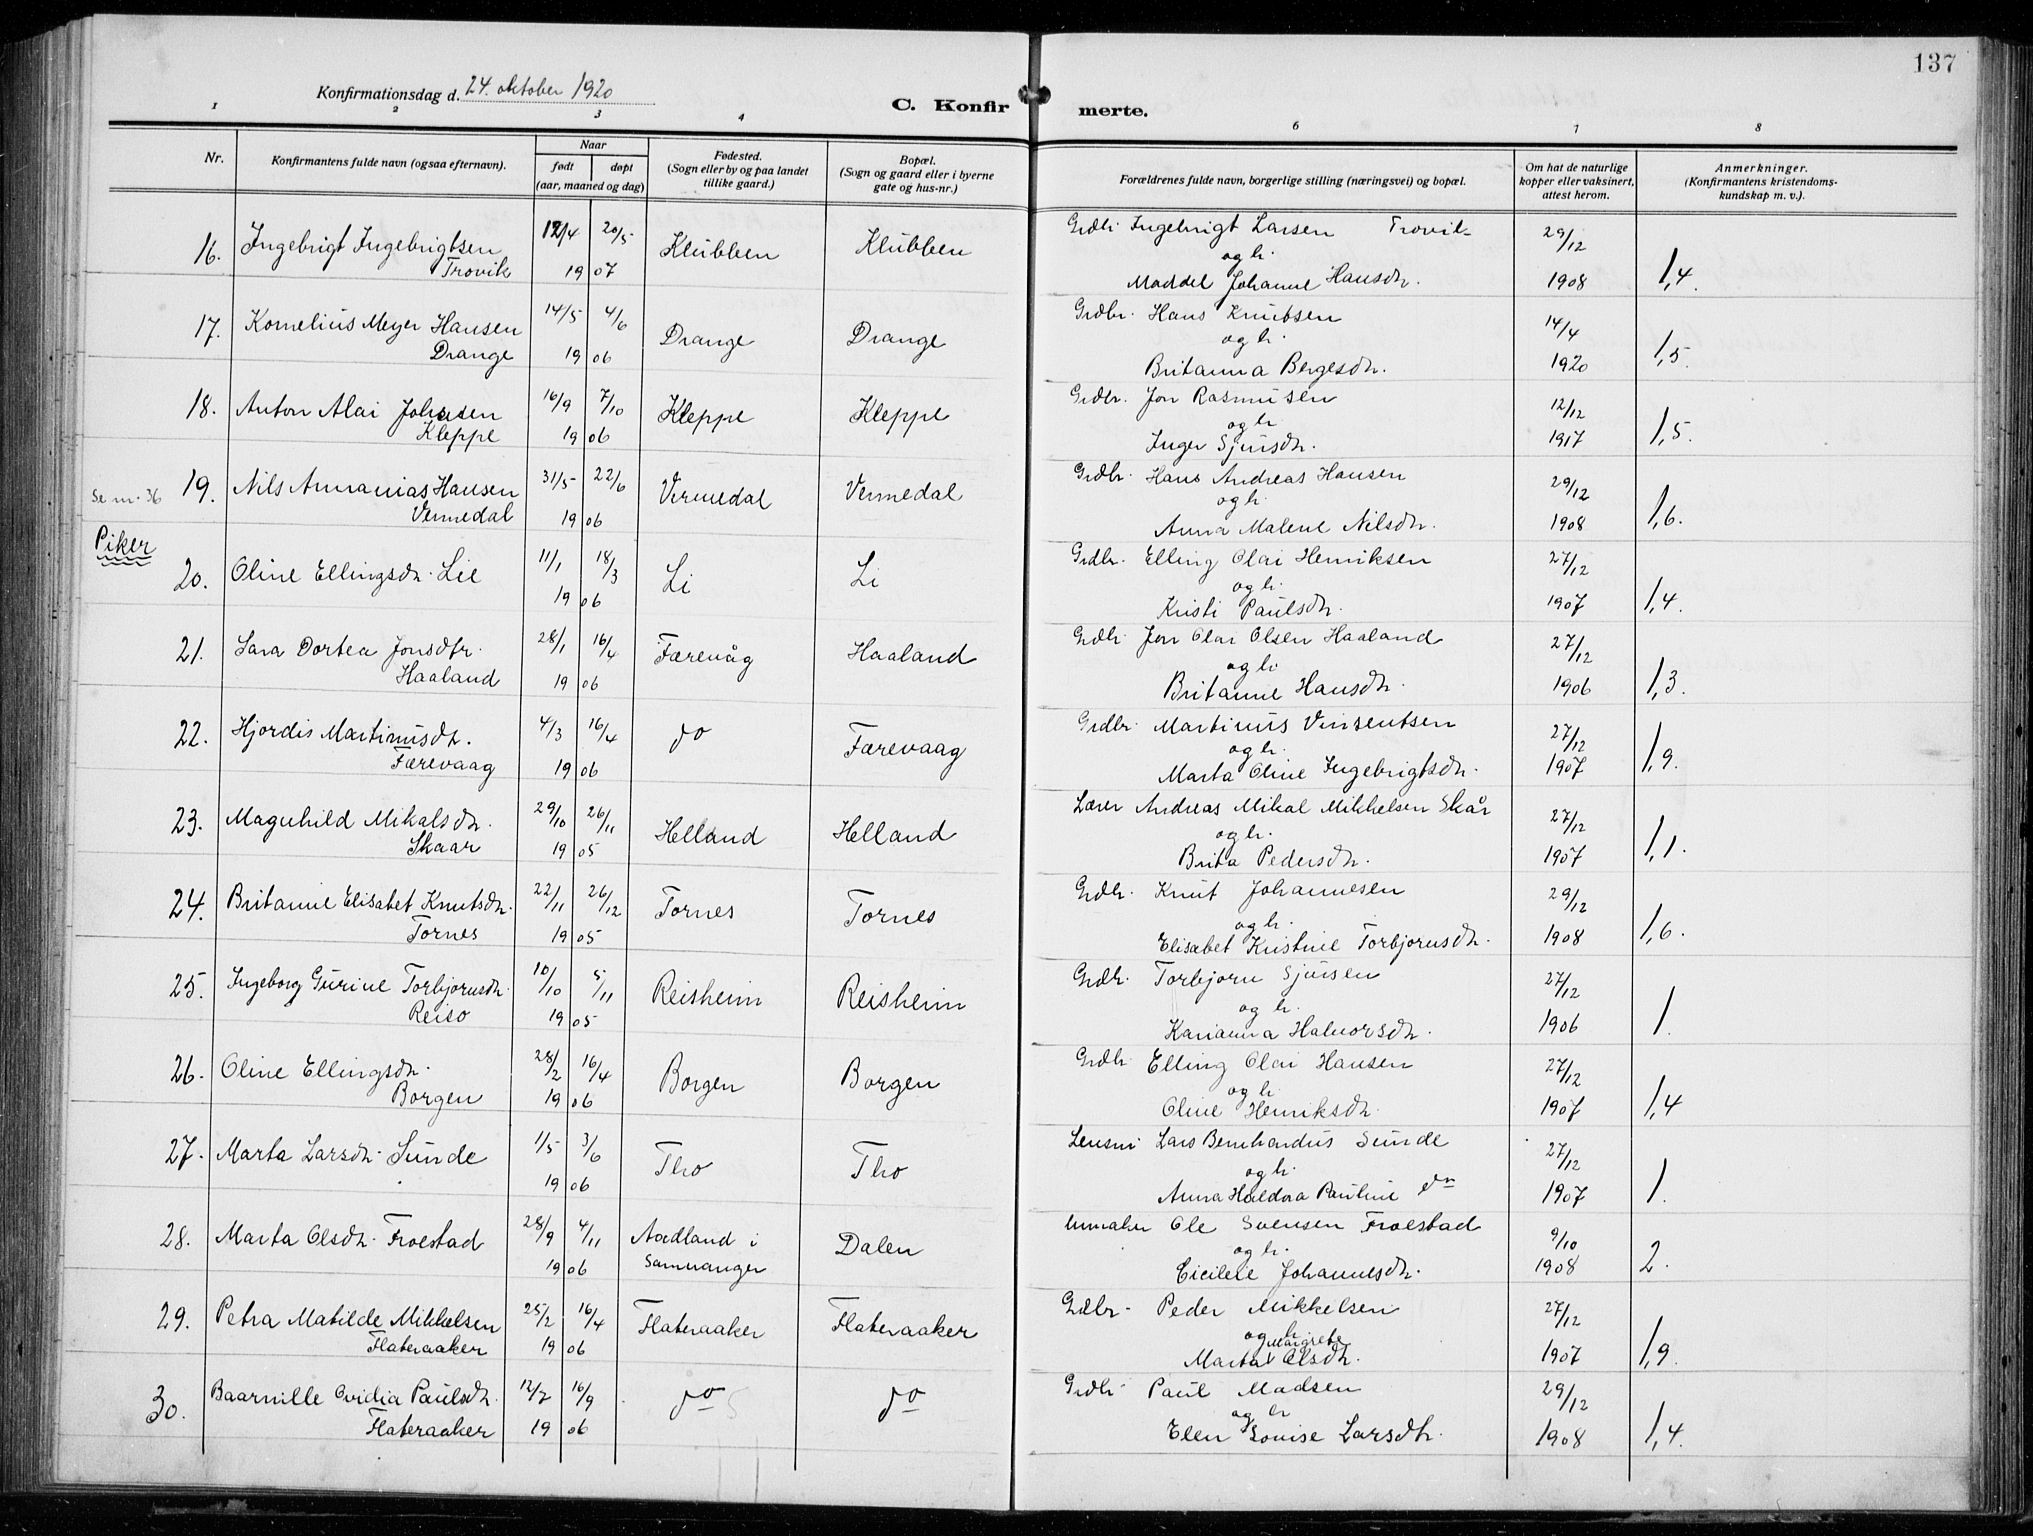 137
Konfirmationsdag d. 24. oktober 1920
C. Konfirmerte.
1 2 3 4 6 7 8
Nr.
Konfirmantens fulde navn (ogsaa efternavn).
Naar
født døpt
(aar, maaned og dag)
Fødested.
(Sogn eller by og paa landet
tillike gaard.)
Bopæl.
(Sogn og gaard eller i byerne
gate og hus-nr.)
Forældrenes fulde navn, borgerlige stilling (næringsvei) og bopæl.
Om hat de naturlige
kopper eller vaksinert,
attest herom.
Anmerkninger.
(Konfirmantens kristendoms-
kundskap m. v.).
16. Ingebrigt Ingebrigtsen 12/4 20/5 Klubben Klubben Grdbr. Ingebrigt Larsen Trovik 29/12
Trovik 19 07 og h. 1908 1,4.
Maddel Johanne Hansdtr.
17. Kornelius Meyer Hansen 14/5 4/6 Drange Drange Grdbr. Hans Knutsen 14/4
Drange 19 06 og h. 1920 1,5.
Britanna Bergesdtr.
18. Anton Alai Johnsen 16/9 7/10 Kleppe Kleppe Grdbr. Jon Rasmusen 12/12
Kleppe 19 06 og h. 1917 1,5.
Inger Sjursdtr.
Se nr. 36 19. Nils Annanias Hansen 31/5 22/6 Vernedal Vernedal Grdbr. Hans Andreas Hansen 29/12
Vernedal 19 06 og h. 1908 1,6.
Anna Malene Nilsdtr.
Piker
20. Oline Ellingsdtr. Lie 11/1 18/3 Li Li Grdbr. Elling Olai Henriksen 27/12
19 06 og h. 1907 1,4.
Kristi Paulsdtr.
21. Sara Dortea Jonsdtr. 28/1 16/4 Færevåg Haaland Grdbr. Jon Olai Olsen Haaland 27/12
Haaland 19 06 og h. 1906 1,3.
Britanne Hansdtr.
22. Hjordis Martinusdtr. 4/3 16/4 do Færevaag Grdbr. Martinus Vinsentsen 27/12
Færevaag 19 06 og h. 1907 1,9.
Marta Oline Ingebrigtsdtr.
23. Magnhild Mikalsdtr. 29/10 26/11 Helland Helland Lærer Andreas Mikal Mikkelsen Skår 27/12
Skaar 19 05 og h. 1907 1,1.
Brita Pedersdtr.
24. Britanne Elisabet Knutsdtr. 22/11 26/12 Tornes Tornes Grdbr. Knut Johannesen 29/12
Tornes 19 05 og h. 1908 1,6.
Elisabet Kristine Torbjornsdtr.
25. Ingeborg Gurine Torbjornsdtr. 10/10 5/11 Reisheim Reisheim Grdbr. Torbjorn Sjursen 27/12
Reiso 19 05 og h. 1906 1.
Karianna Halvorsdtr.
26. Oline Ellingsdtr. 28/2 16/4 Borgen Borgen Grdbr. Elling Olai Hansen 27/12
Borgen 19 06 og h. 1907 1,4
Oline Henriksdtr.
27. Marta Larsdtr. Sunde 1/5 3/6 Tho Tho Lensm. Lars Bernhardus Sunde 27/12
19 06 og h. 1907 1.
Anna Haldora Pauline do
28. Marta Olsdtr. Froestad 28/9 4/11 Aadland i Dalen Urmaker Ole Svensen Froestad 9/10
19 06 Samnanger og h. 1908 2.
Cicilie Johannesdtr.
29. Petra Matilde Mikkelsen 25/2 16/4 Flateraaker Flateraaker Grdbr. Peder Mikkelsen 27/12
Flateraaker 19 06 og h. 1907 1,9.
Marta Margrete Olsdtr.
30. Baarnille Ovidia Paulsdtr. 12/7 16/9 do do Grdbr. Paul Madsen 29/12
Flateraaker 19 06 og h. 1908 1,4.
Elen Lovise Larsdtr.